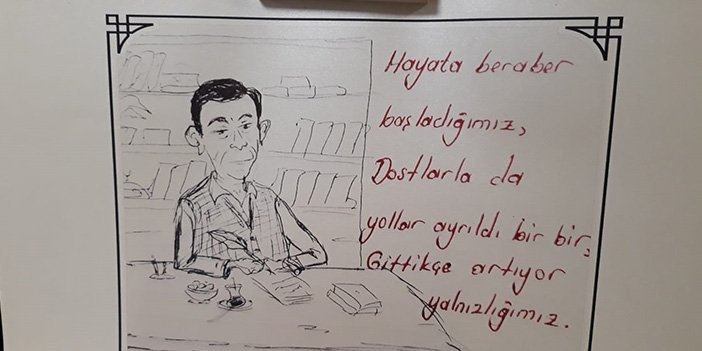 Hayata beraber
başladığımız,
Dostlarla da
yollar ayrıldı bir bir,
Gittikçe artıyor
yalnızlığımız.